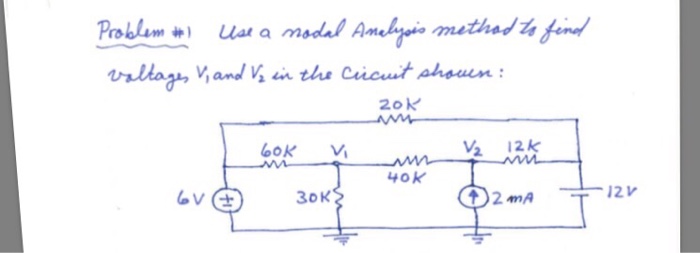 Problem #1 Use a nodal Analysis method to find
voltages V₁ and V₂ in the Circuit shown :
20K
60K V₁ V₂ 12K
40K
6V ± 30K 2mA 12V